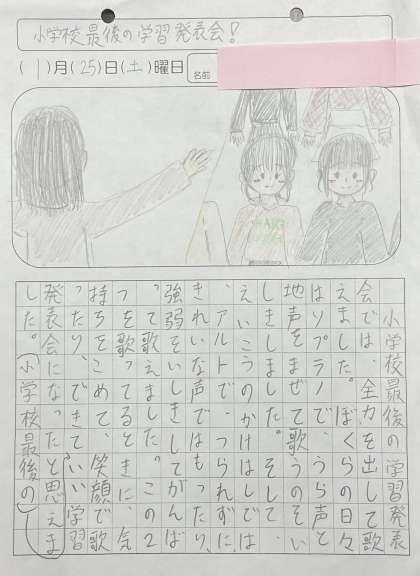 小学校最後の学習発表会!
(1)月(25)日(土)曜日
名前
小学校最後の学習発表
会では、全力を出して歌
えました。ぼくらの日々と
はソプラノで、うら声と
地声をまぜて歌うの
しきしました。そして、
えいこうのかけはしでは、
アルトで、つられずに、
きれいな声ではもったり、
強弱をいしきしてがんば
って歌えました。この2
つを歌ってるときに、気
持ちをこめて、笑顔で歌
ったりできて、いい学習
発表会になったと思えま
した。(小学校最後の)